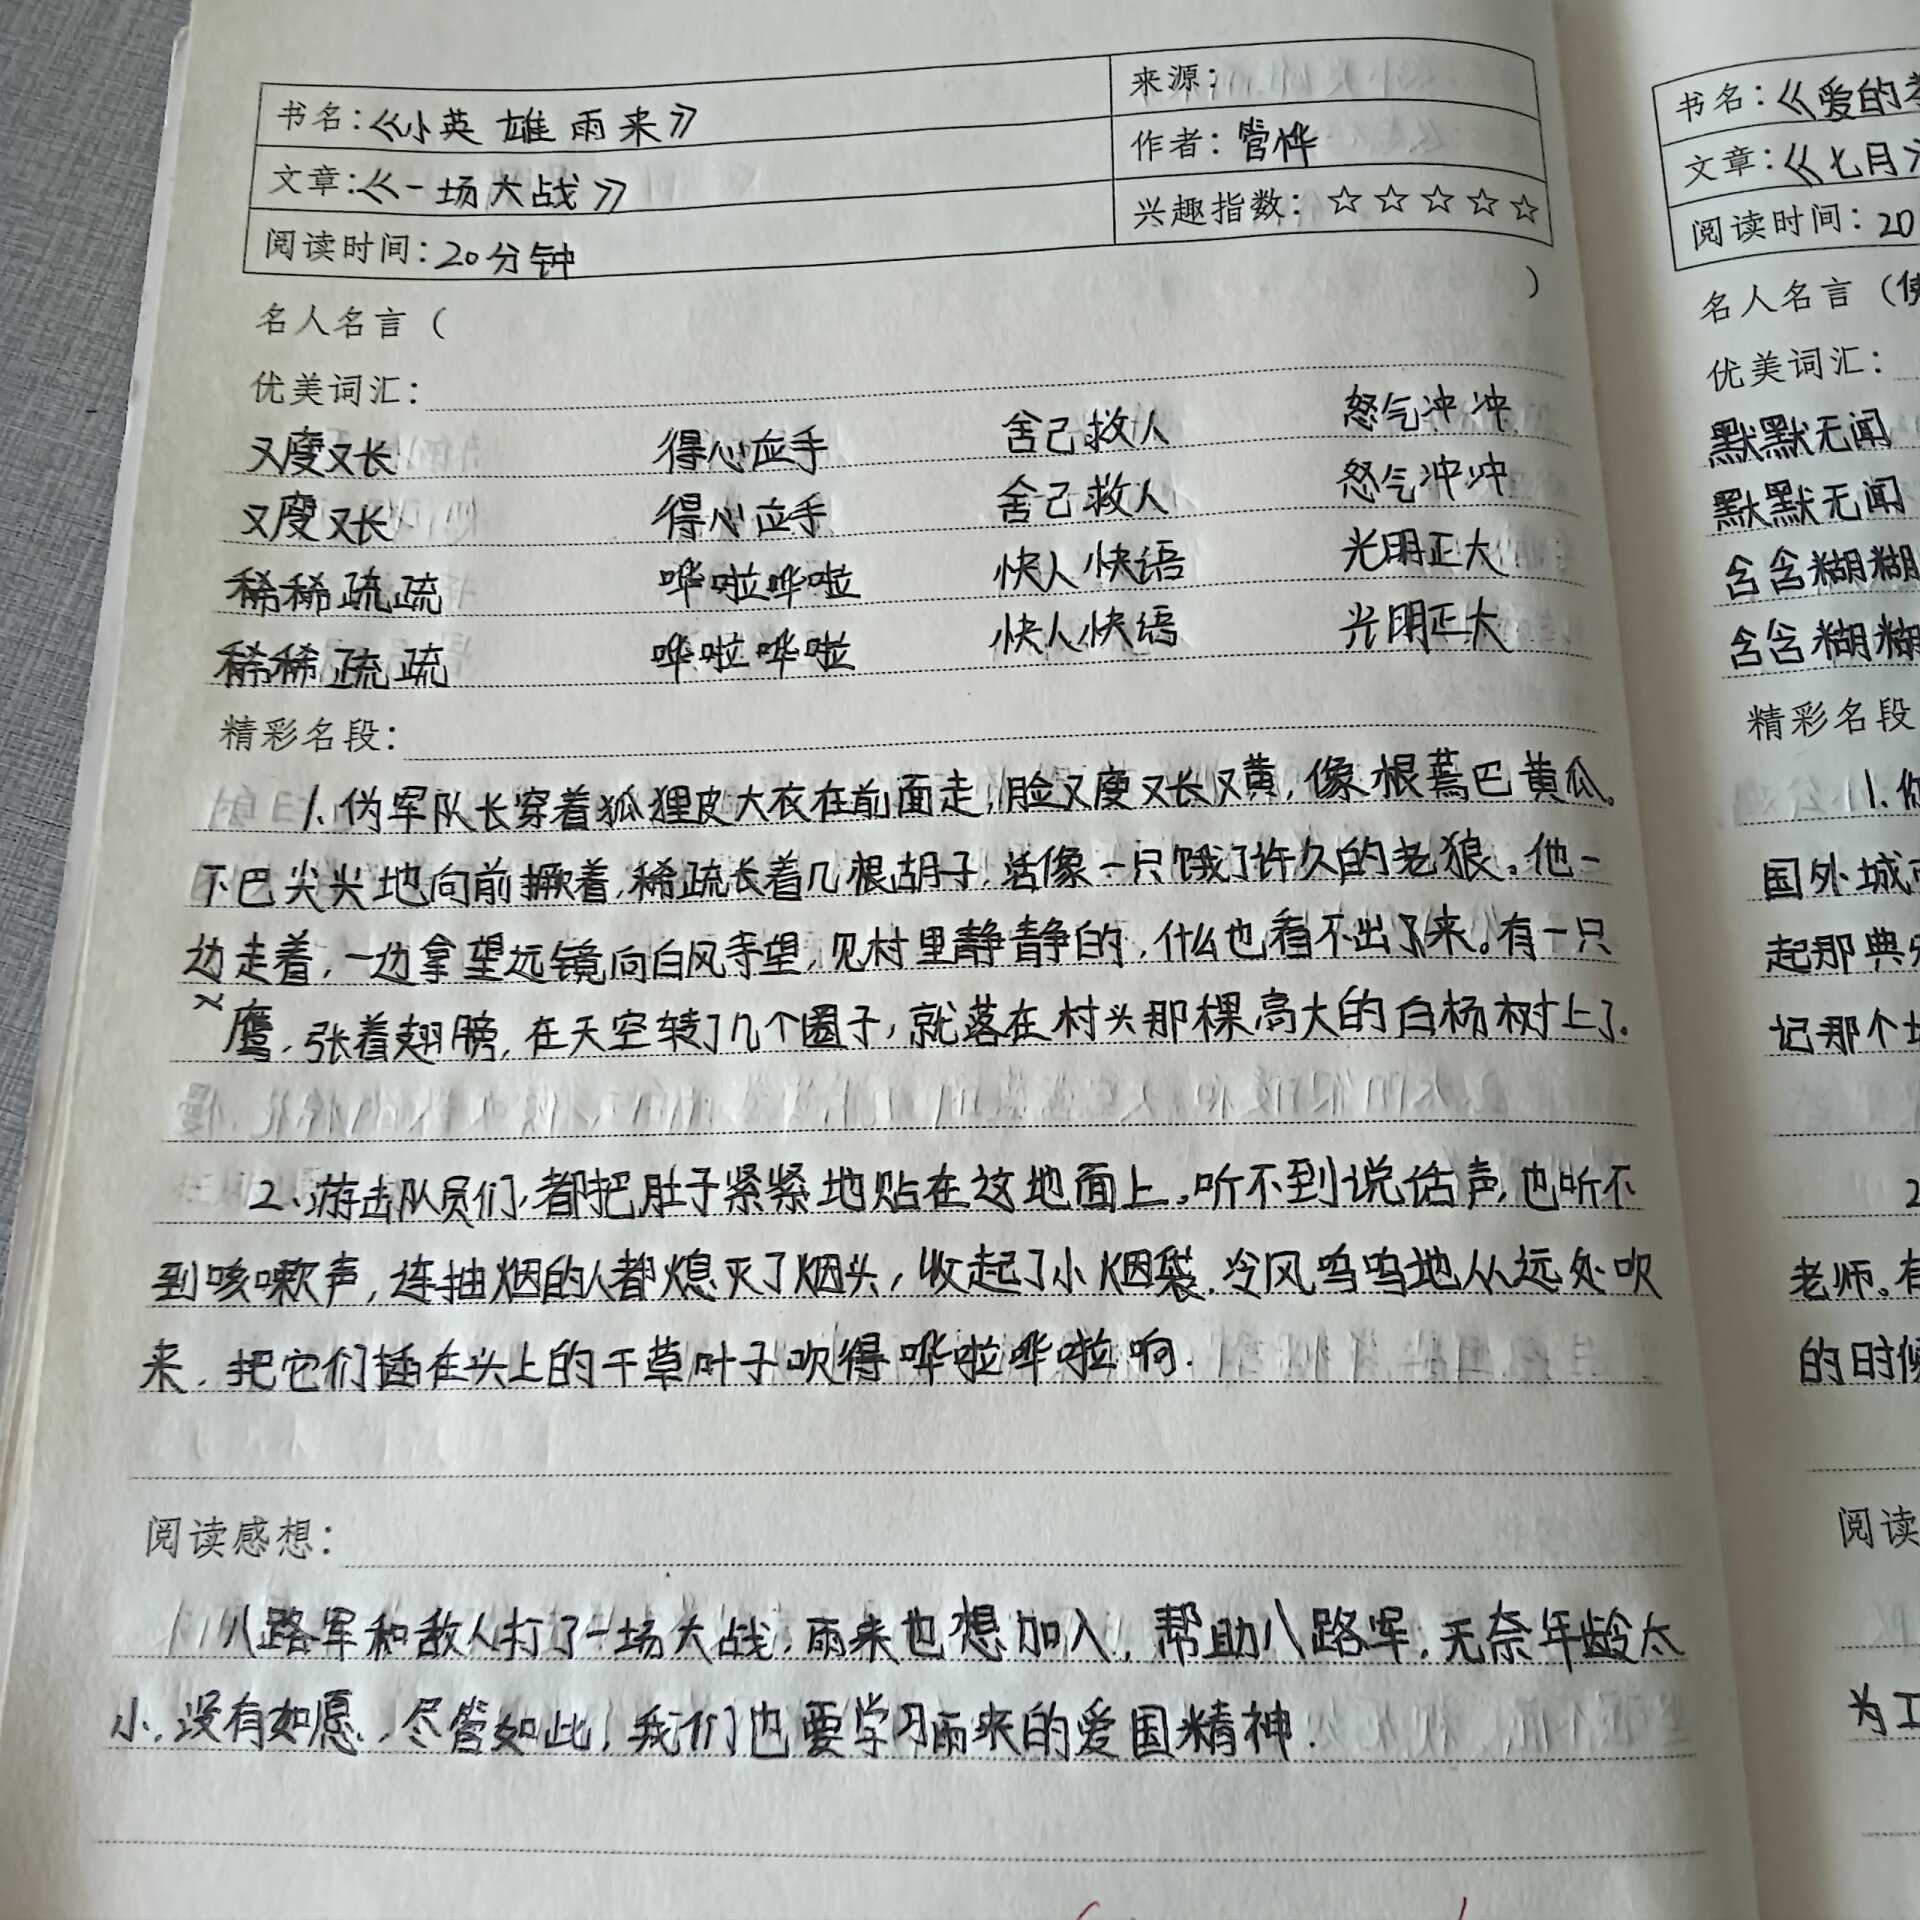 书名：《小英雄雨来》
来源：
文章：《一场大战》
作者：管桦
阅读时间：20分钟
兴趣指数：☆☆☆☆☆
名人名言（ ）
优美词汇：
又瘦又长 得心应手 舍己救人 怒气冲冲
又瘦又长 得心应手 舍己救人 怒气冲冲
稀稀疏疏 哗啦哗啦 快人快语 光明正大
稀稀疏疏 哗啦哗啦 快人快语 光明正大
精彩名段：
1.伪军队长穿着狐狸皮大衣在前面走，脸又瘦又长又黄，像根蔫巴黄瓜。
下巴尖尖地向前撅着，稀疏长着几根胡子，活像一只饿了许久的老狼。他一
边走着，一边拿望远镜向白风寺望，见村里静静的，什么也看不出了来。有一只
鹰，张着翅膀，在天空转了几个圈子，就落在村头那棵高大的白杨树上了.
2、游击队员们，都把肚子紧紧地贴在这地面上。听不到说话声，也听不
到咳嗽声，连抽烟的人都熄灭了烟头，收起了小烟袋.冷风呜呜地从远处吹
来，把它们插在头上的干草叶子吹得哗啦哗啦响.
阅读感想：
八路军和敌人打了一场大战，雨来也想加入，帮助八路军，无奈年龄太
小，没有如愿，尽管如此，我们也要学习雨来的爱国精神.
书名：《爱的
文章：《七月
阅读时间：20
名人名言（
优美词汇：
默默无闻
默默无闻
含含糊糊
含含糊糊
精彩名段
1.
国外城
起那典
记那个
2
老师。有
的时候
阅读
为